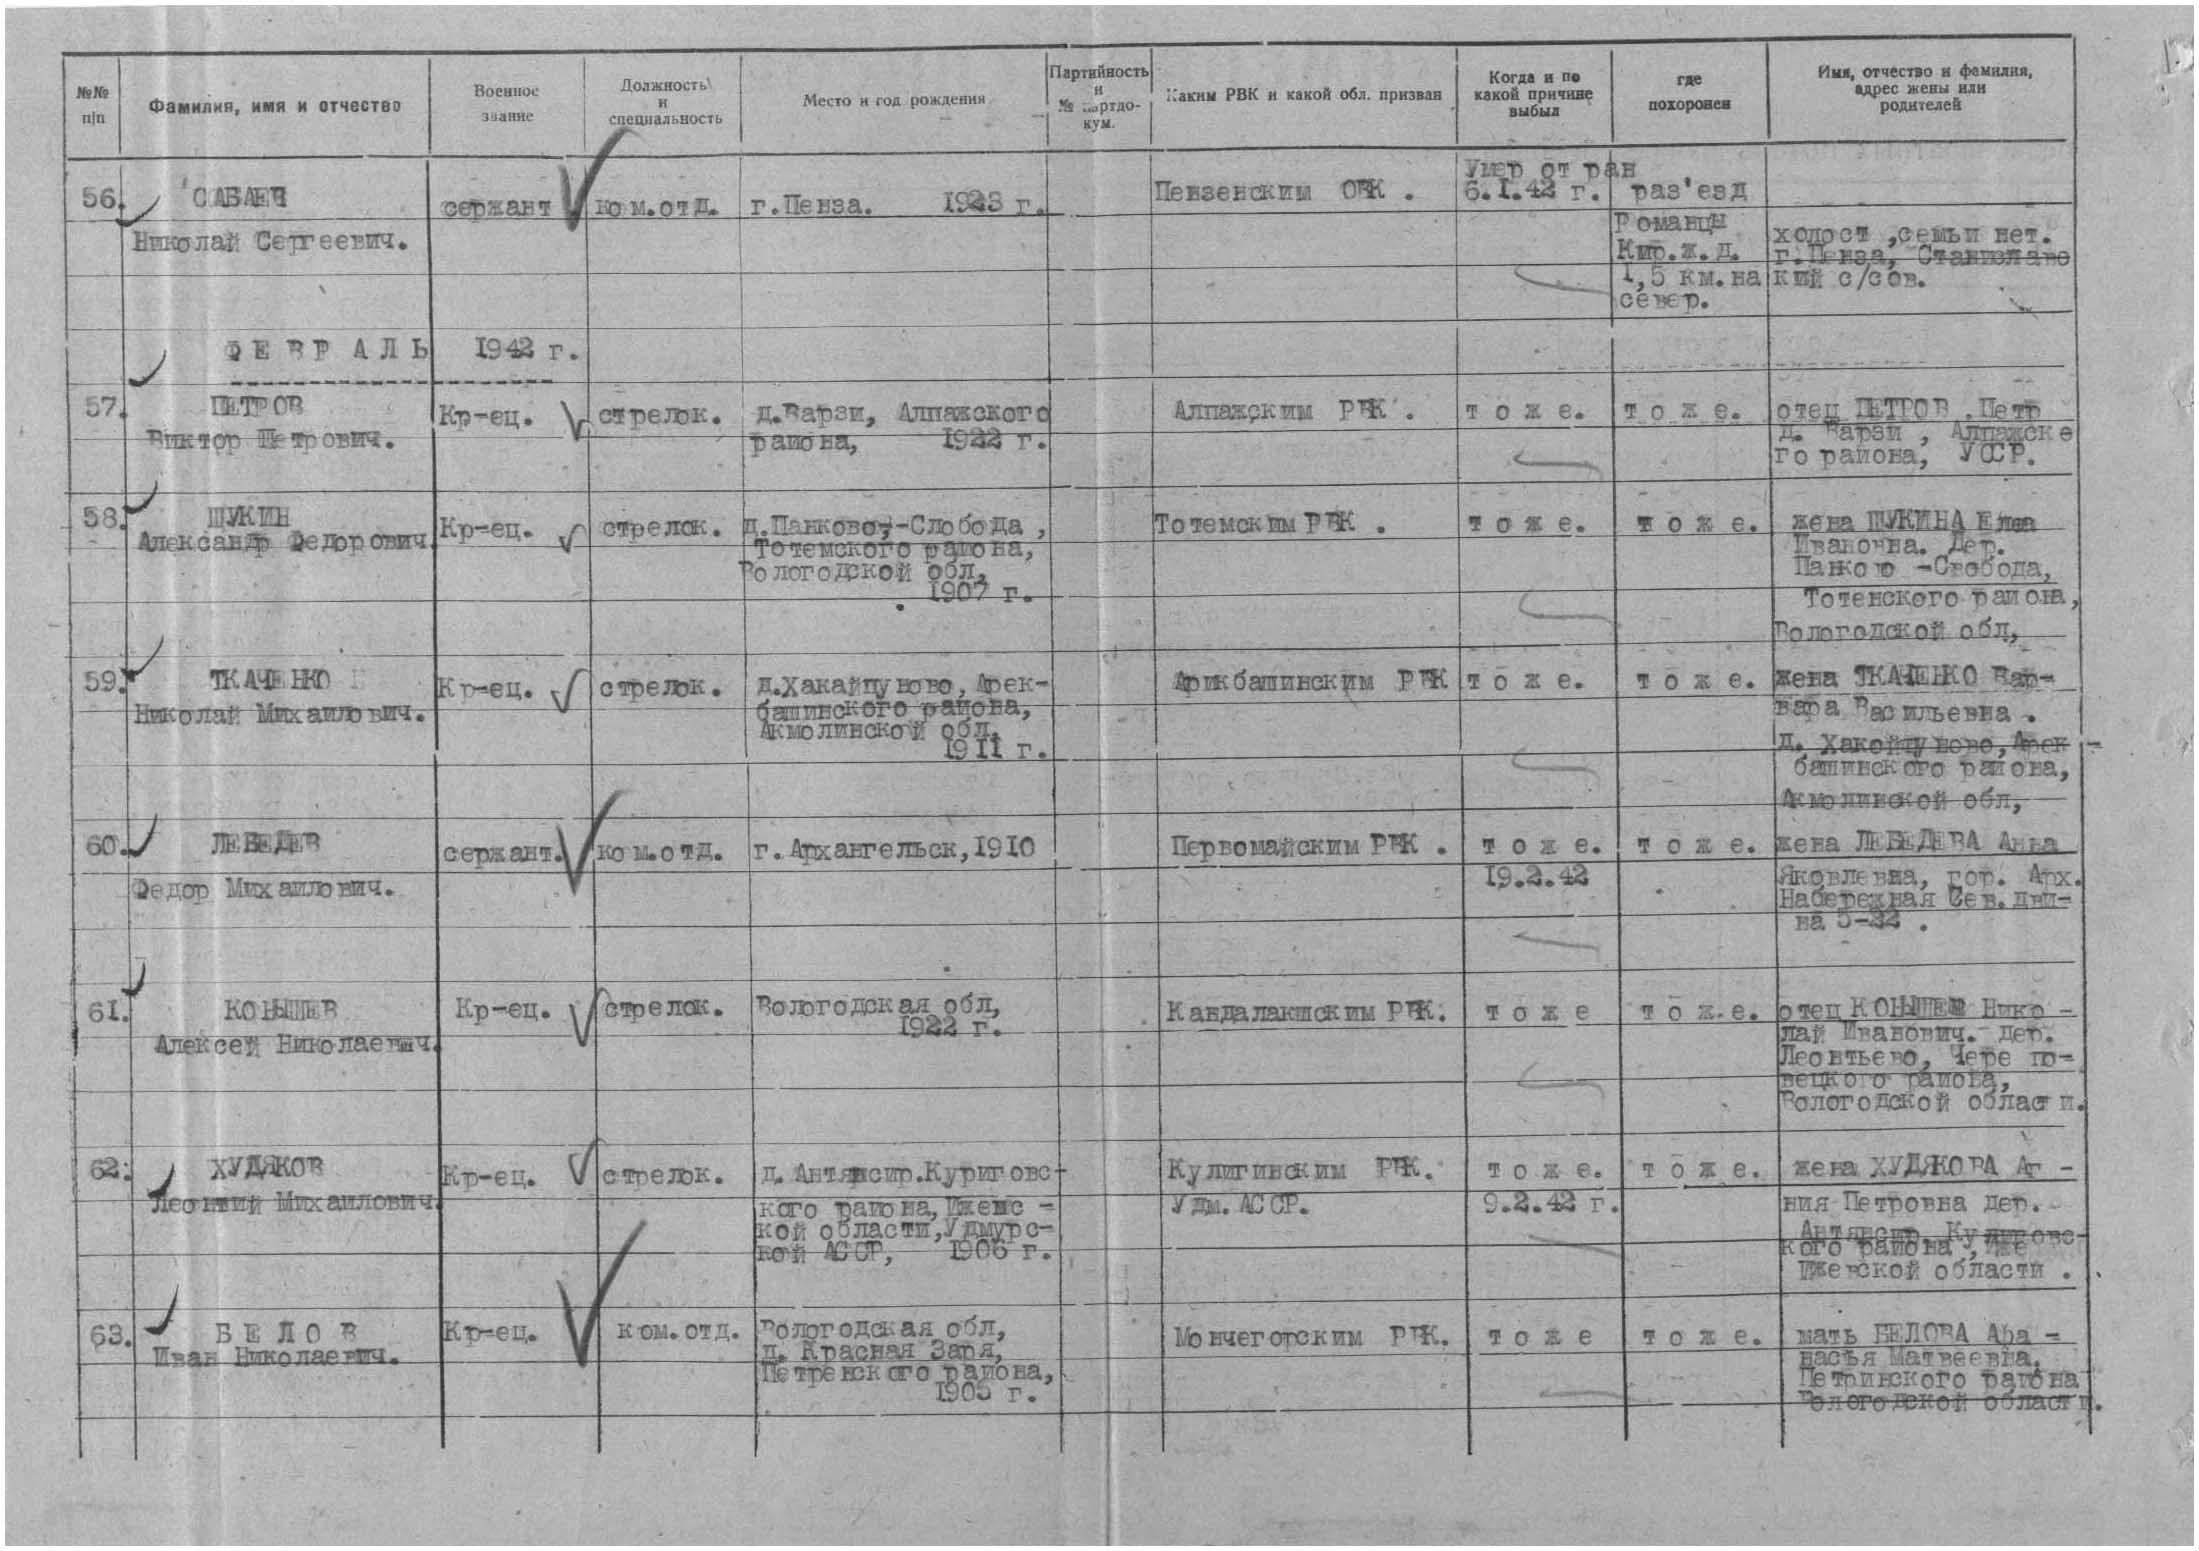 №№ п/п
Фамилия, имя и отчество
Военное звание
Должность и специальность
Место и год рождения
Партийность и № партдокум.
Каким РВК и какой обл. призван
Когда и по какой причине выбыл
где похоронен
Имя, отчество и фамилия, адрес жены или родителей
56. САБАЕВ
Николай Сергеевич.
сержант
ком.отд.
г.Пенза. 1923 г.
Пензенским ОВК .
Умер от ран
6.I.42 г.
раз'езд
Романцы
Кир.ж.д.
I,5 км.на
север.
холост ,семьи нет.
г.Пенза, Станиславс
кий с/сов.
ФЕВРАЛЬ 1942 г.
57. ПЕТРОВ
Виктор Петрович.
Кр-ец.
стрелок.
д.Варзи, Алпажского
района, 1922 г.
Алпажским РВК .
тоже.
тоже.
отец ПЕТРОВ Петр
д. Варзи , Алпажско
го района, УССР.
58. ЩУКИН
Александр Федорович.
Кр-ец.
стрелок.
д.Панково,-Слобода ,
Тотемского района,
Вологодской обл,
1907 г.
Тотемским РВК .
тоже.
тоже.
жена ЩУКИНА
Ивановна. Дер.
-Свобода,
Тотенского района,
Вологодской обл,
59. ТКАЧЕНКО
Николай Михаилович.
Кр-ец.
стрелок.
д.Хакайцуново, Арек-
башинского района,
Акмолинской обл,
19II г.
Арикбашинским РВК
тоже.
тоже.
жена ТКАЧЕНКО Вар-
вара Васильевна .
д. Хакойцуново, Арек-
башинского района,
Акмолинской обл,
60. ЛЕБЕДЕВ
Федор Михаилович.
сержант.
ком.отд.
г.Архангельск,I9I0
Первомайским РВК .
тоже.
19.2.42
тоже.
жена ЛЕБЕДЕВА Анна
Яковлевна, гор. Арх.
Набережная Сев.Дви-
на 5-32 .
61. КОНЫШЕВ
Алексей Николаевич.
Кр-ец.
стрелок.
Вологодская обл,
1922 г.
Кандалакшским РВК.
тоже
тоже.
отец КОНЫШЕВ Нико-
лай Иванович. дер.
Леонтьево, Черепо-
вецкого района,
Вологодской области.
62. ХУДЯКОВ
Леонтий Михаилович.
Кр-ец.
стрелок.
д. Антянсир.Куриговс-
кого района, Ижевс-
кой области,Удмурс-
кой АССР, 1906 г.
Кулигинским РВК.
Удм.АССР.
тоже.
9.2.42 г.
тоже.
жена ХУДЯКОВА Аг-
ния Петровна дер.
Антянсир
кого района , Иже
Ижевской области .
63. БЕЛОВ
Иван Николаевич.
Кр-ец.
ком.отд.
Вологодская обл,
д. Красная Заря,
Петренского района,
1905 г.
Мончегорским РВК.
тоже
тоже.
мать БЕЛОВА Афа-
насья Матвеевна.
Петринского района
Вологодской области.